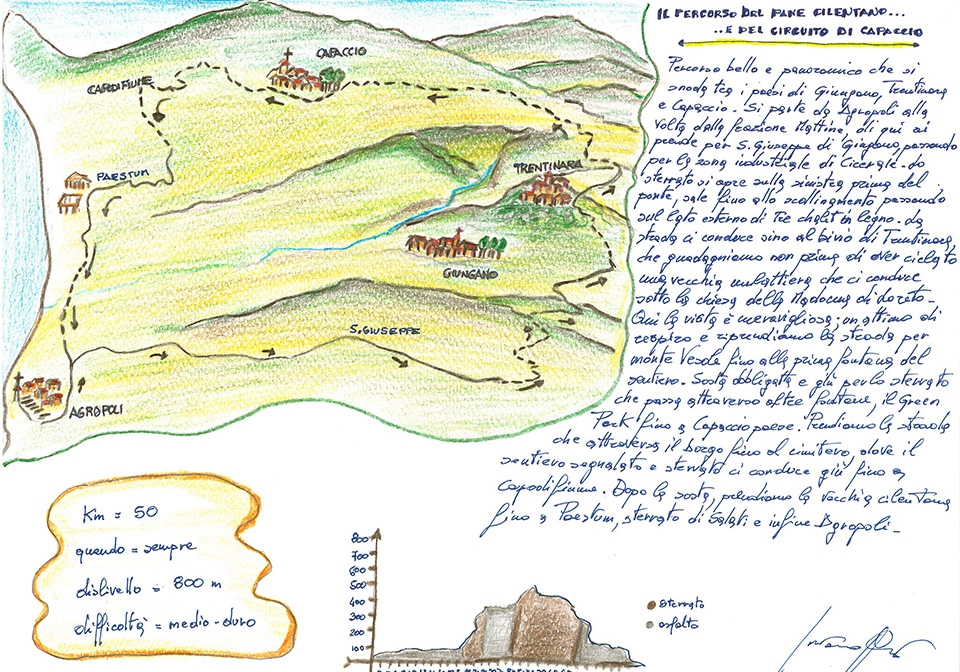 IL PERCORSO DEL PANE CILENTANO...
..E DEL CIRCUITO DI CAPACCIO
Percorso bello e panoramico che si
snoda tra i paesi di Giungano, Trentinara
e Capaccio. Si parte da Agropoli alla
volta della frazione Mattine, di qui si
prende per S. Giuseppe di Giungano, passando
per la zona industriale di Cicerale. Lo
sterrato si apre sulla sinistra prima del
ponte, sale fino allo scollinamento passando
sul lato esterno di tre chalet in legno. La
strada ci conduce sino al bivio di Trentinara,
che guadagniamo non prima di aver ciclato
una vecchia mulattiera che ci conduce
sotto la chiesa della Madonna di Loreto.
Qui la vista è meravigliosa; un attimo di
respiro e riprendiamo la strada per
monte Vesole fino alla prima fontana del
sentiero. Sosta obbligata e giù per lo sterrato
che passa attraverso altre fontane, il Green
Park fino a Capaccio paese. Prendiamo la strada
che attraversa il borgo fino al cimitero, dove il
sentiero segnalato e sterrato ci conduce giù fino a
Capodifiume. Dopo la sosta, prendiamo la vecchia cilentana
fino a Paestum, sterrato di Salati e infine Agropoli.
CAPACCIO
CAPODIFIUME
PAESTUM
TRENTINARA
GIUNGANO
S. GIUSEPPE
AGROPOLI
Km = 50
quando = sempre
dislivello = 800 m
difficoltà = medio-duro
800
700
600
500
400
300
200
100
sterrato
asfalto